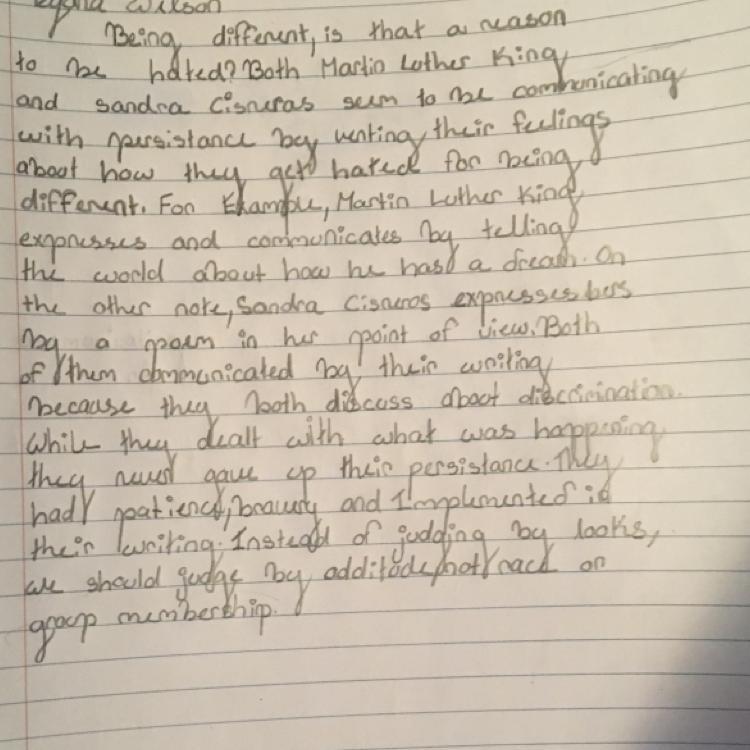 Wilson
Being different, is that a reason
to be hated? Both Martin Luther King
and sandra Cisneras seem to be communicating
with persistance by venting their feelings
about how they get hated for being
different. For Example, Martin Luther King
expresses and communicates by telling
the world about how he has a dream. On
the other note, Sandra Cisneros expresses hers
by a poem in her point of view. Both
of them communicated by their writing
because they both discuss about discrimination.
While they dealt with what was happening
they never gave up their persistance. They
had patience, bravery and Implemented id
their writing. Instead of judging by looks,
we should judge by additude, not race or
group membership.